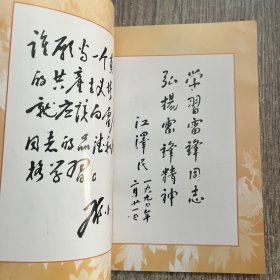 谁愿当一个
的共产主义
就应该向
同志的品德和
格学習。
邓小
学習雷锋同志
弘揚雷锋精神
江澤民
一九九〇年
二月廿一日